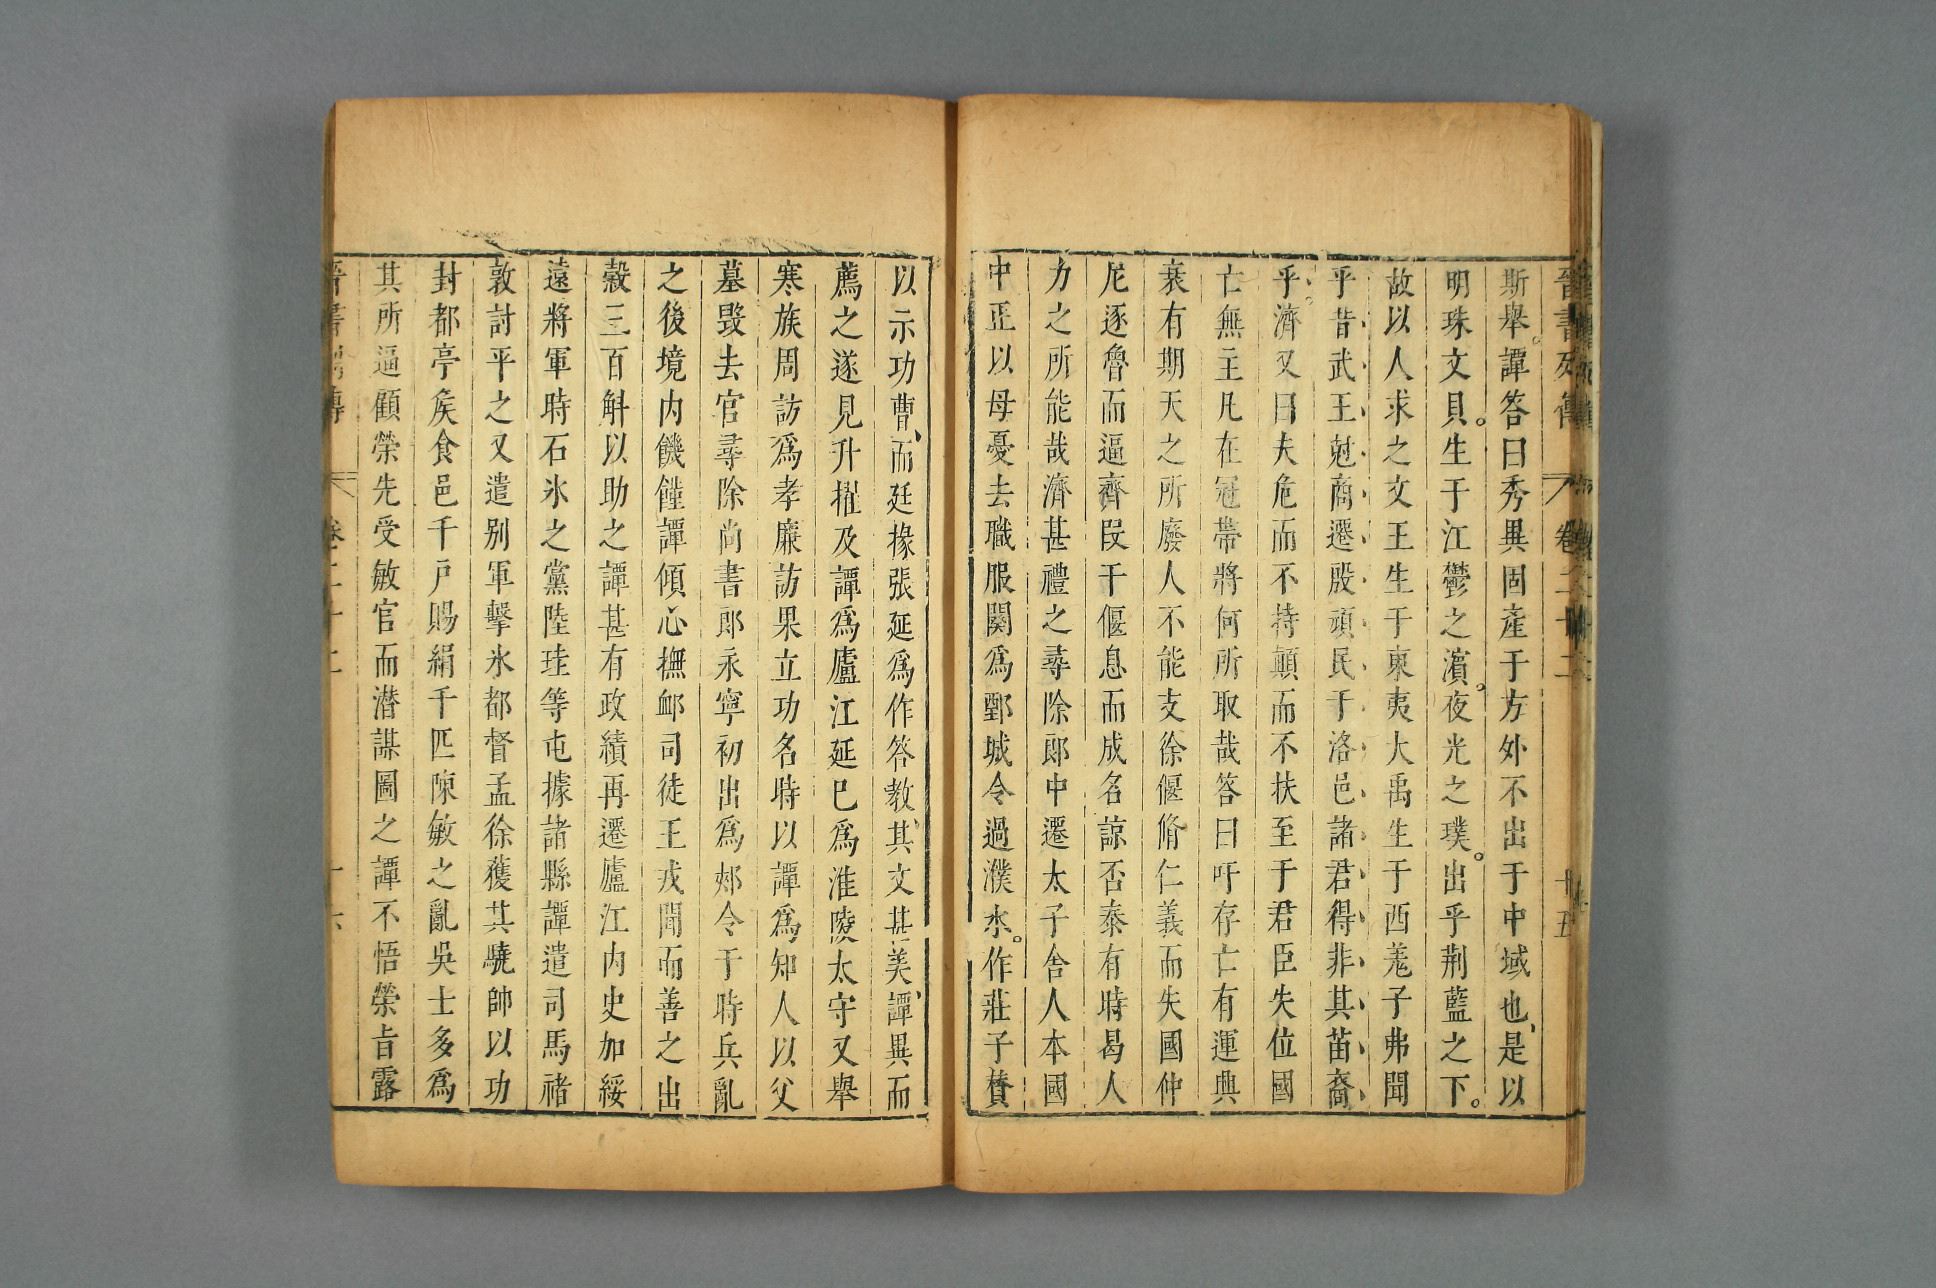 晉書列傳 卷二十二 十五
斯舉譚答曰秀異固產于方外不出于中域也是以
明珠文貝生于江鬱之濱夜光之璞出乎荆藍之下
故以人求之文王生于東夷大禹生于西羌子弗聞
乎昔武王尅商遷殷頑民于洛邑諸君得非其苗裔
乎濟又曰夫危而不持顚而不扶至于君臣失位國
亡無主凡在冠帶將何所取哉答曰吁存亡有運興
衰有期天之所廢人不能支徐偃脩仁義而失國仲
尼逐魯而逼齊段干偃息而成名諒否泰有時曷人
力之所能哉濟甚禮之尋除郎中遷太子舍人本國
中正以母憂去職服闋爲鄄城令過濮水作莊子贊
以示功曹而廷掾張延爲作答教其文甚美譚異而
薦之遂見升擢及譚爲廬江延已爲淮陵太守又舉
寒族周訪爲孝廉訪果立功名時以譚爲知人以父
墓毀去官尋除尚書郎永寧初出爲郟令于時兵亂
之後境内饑饉譚傾心撫䘏司徒王戎聞而善之出
穀三百斛以助之譚甚有政績再遷廬江内史加綏
遠將軍時石氷之黨陸珪等屯據諸縣譚遣司馬禇
敦討平之又遣别軍擊氷都督孟徐獲其驍帥以功
封都亭矦食邑千戸賜絹千匹陳敏之亂吳士多爲
其所逼顧榮先受敏官而潛謀圖之譚不悟榮旨露
晉書列傳 卷二十二 十六